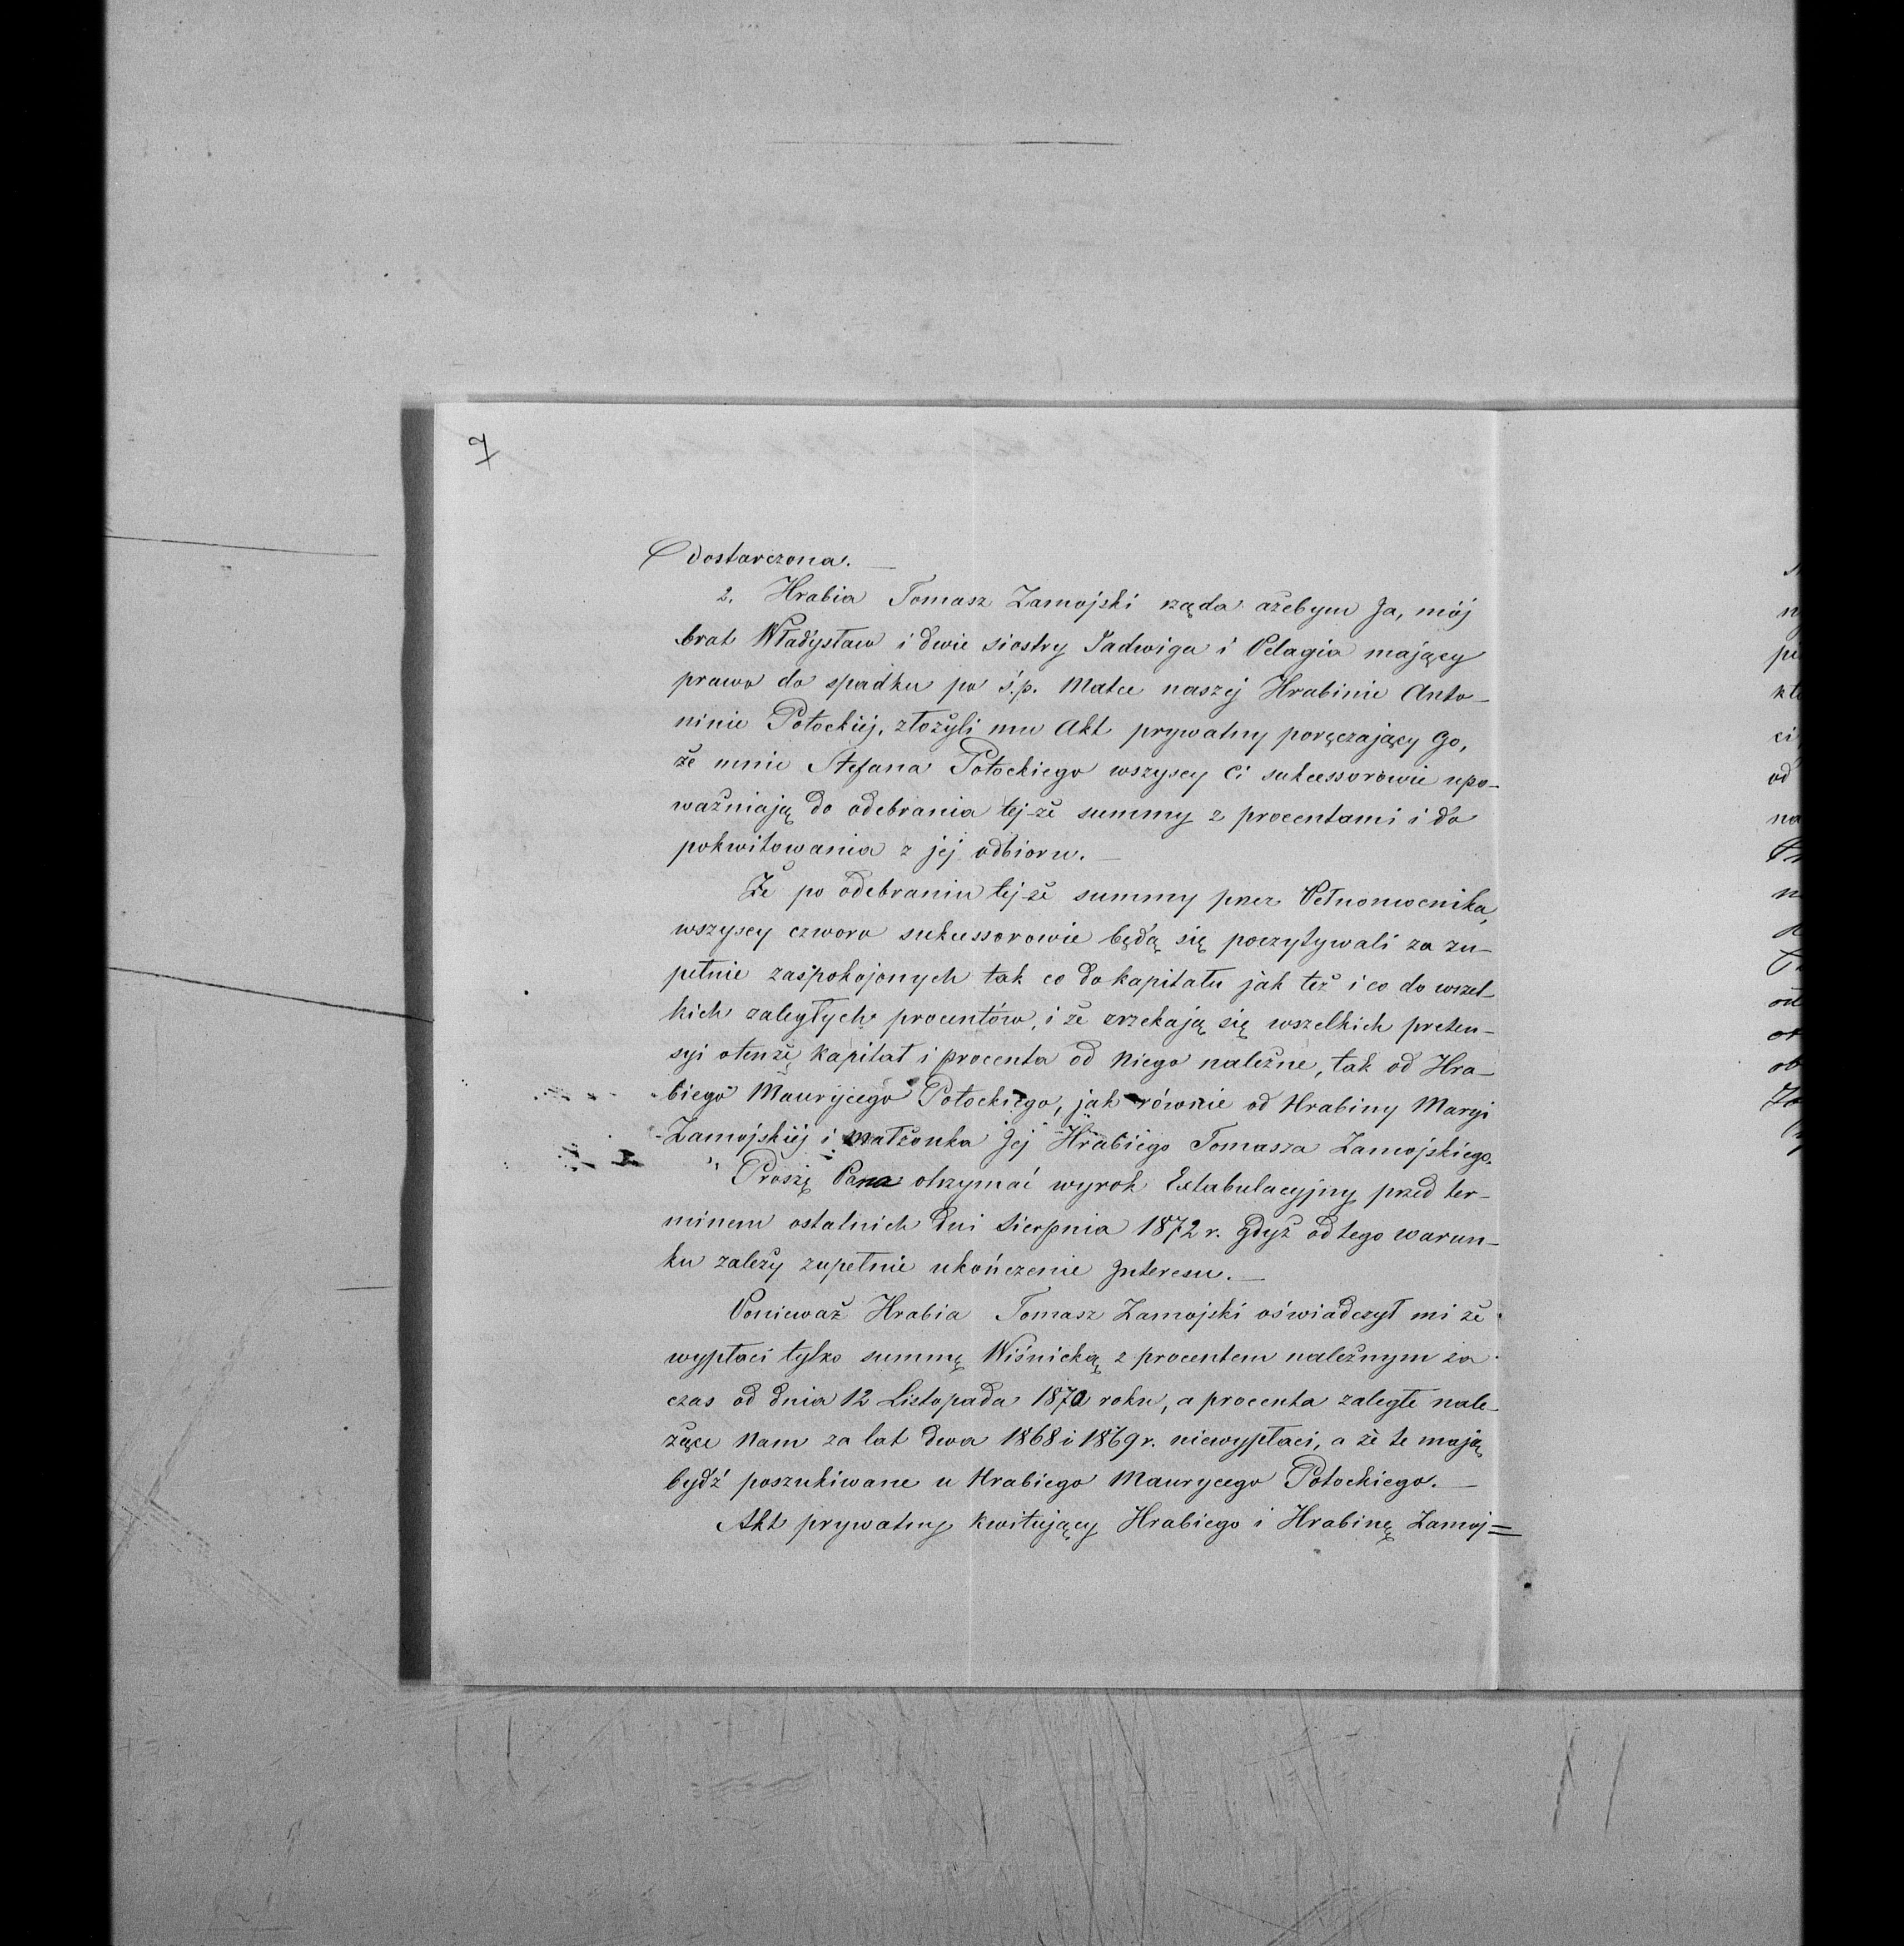 7
dostarczona. —
2. Hrabia Tomasz Zamojski rząda ażebym Ja, mój
brat Władysław i dwie siostry Jadwiga i Pelagia mający
prawo do spadku po ś.p. Matce naszej Hrabinie Anto-
ninie Potockiej, złożyli mu Akt prywatny poręczający Go,
że mnie Stefana Potockiego wszyscy Ci sukcessorowie upo-
ważniają do odebrania tej-że summy z procentami i do
pokwitowania z jej odbioru. —
Że po odebraniu tej-że summy przez Pełnomocnika,
wszyscy czworo sukcessorowie będą się poczytywali za zu-
pełnie zaspokojonych tak co do kapitału jak też i co do wszel-
kich zaległych procentów, i że zrzekają się wszelkich preten-
syi o tenże kapitał i procenta od Niego należne, tak od Hra-
biego Maurycego Potockiego, jak równie od Hrabiny Maryi
Zamojskiej i małżonka Jej Hrabiego Tomasza Zamojskiego.
Proszę Pana otrzymać wyrok Extabulacyjny przed ter-
minem ostatnich dni Sierpnia 1872 r. gdyż od tego warun-
ku zależy zupełnie ukończenie Interesu. —
Ponieważ Hrabia Tomasz Zamojski oświadczył mi że
wypłaci tylko summę Wiśnicką z procentem należnym za
czas od dnia 12 Listopada 1870 roku, a procenta zaległe nale-
żące Nam za lat dwa 1868 i 1869 r. niewypłaci, a że te mają
bydź poszukiwane u Hrabiego Maurycego Potockiego. —
Akt prywatny kwitujący Hrabiego i Hrabinę Zamoj=